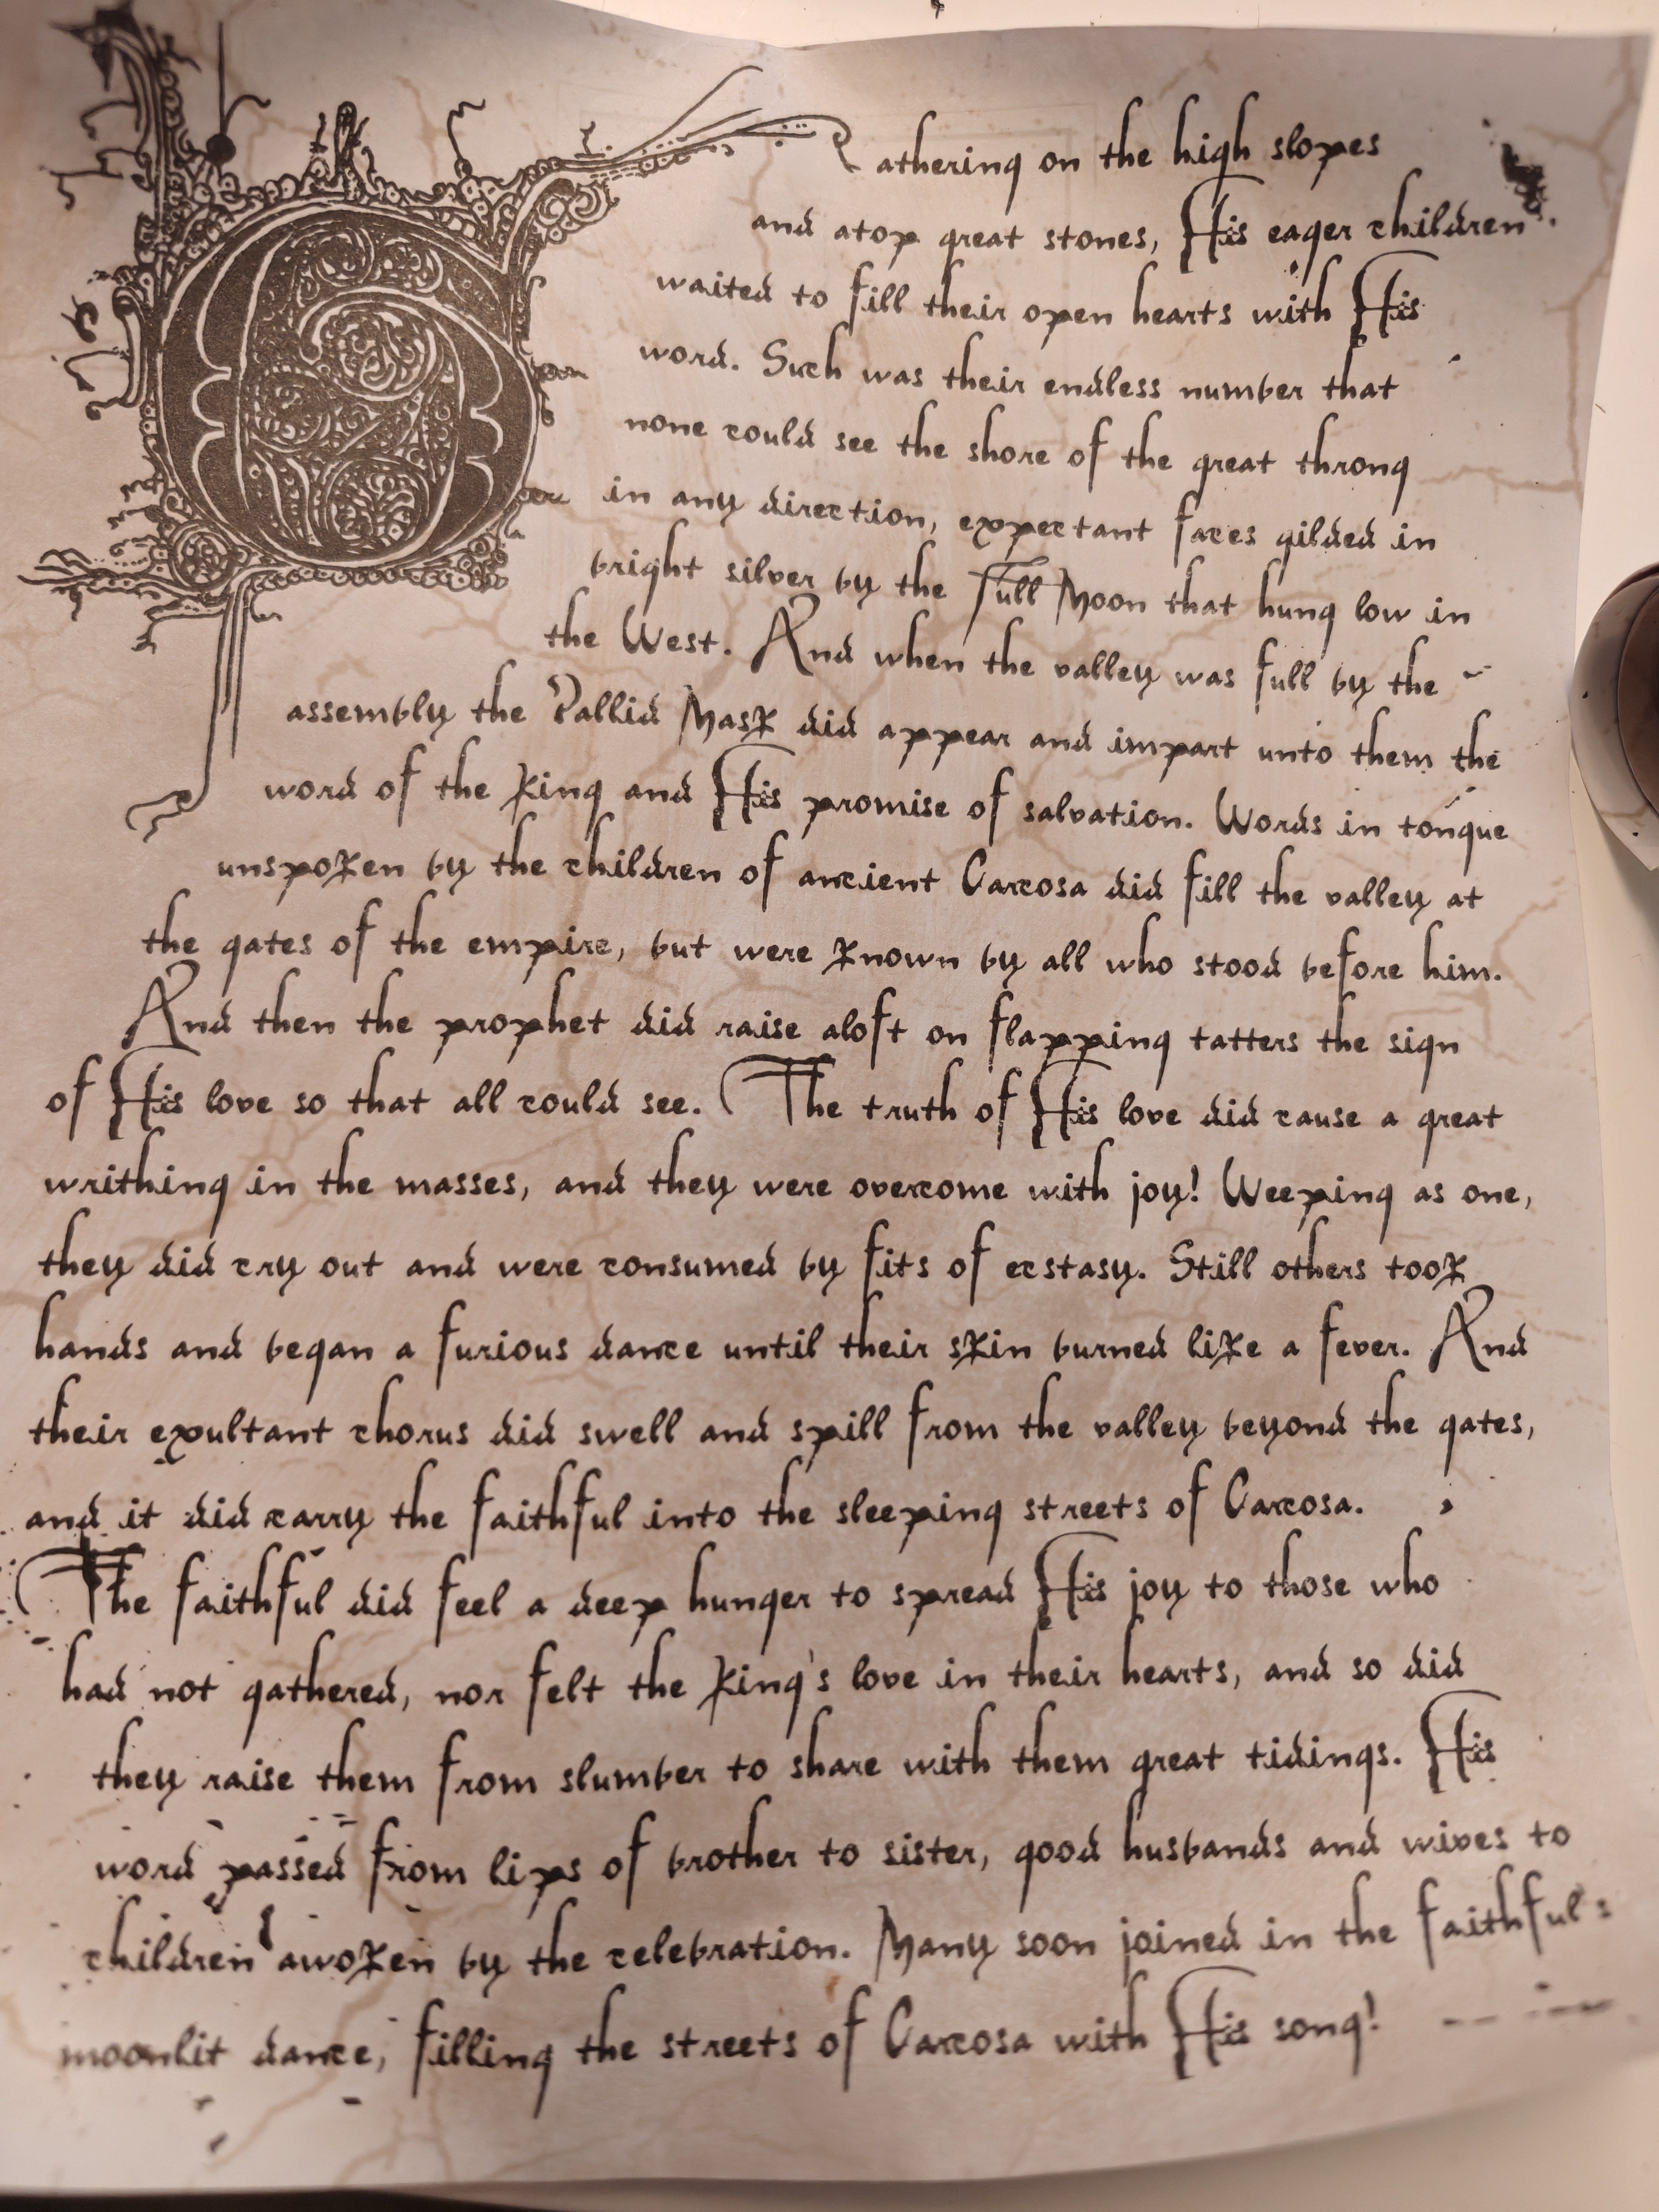 Gathering on the high slopes
and atop great stones, His eager children
waited to fill their open hearts with His
word. Such was their endless number that
none could see the shore of the great throng
in any direction, expectant faces gilded in
bright silver by the Full Moon that hung low in
the West. And when the valley was full by the
assembly the Pallid Mask did appear and impart unto them the
word of the King and His promise of salvation. Words in tongue
unspoken by the children of ancient Carcosa did fill the valley at
the gates of the empire, but were known by all who stood before him.
And then the prophet did raise aloft on flapping tatters the sign
of His love so that all could see. The truth of His love did cause a great
writhing in the masses, and they were overcome with joy! Weeping as one,
they did cry out and were consumed by fits of ecstasy. Still others took
hands and began a furious dance until their skin burned like a fever. And
their exultant chorus did swell and spill from the valley beyond the gates,
and it did carry the faithful into the sleeping streets of Carcosa.
The faithful did feel a deep hunger to spread His joy to those who
had not gathered, nor felt the King's love in their hearts, and so did
they raise them from slumber to share with them great tidings. His
word passed from lips of brother to sister, good husbands and wives to
children awoken by the celebration. Many soon joined in the faithful's
moonlit dance, filling the streets of Carcosa with His song!